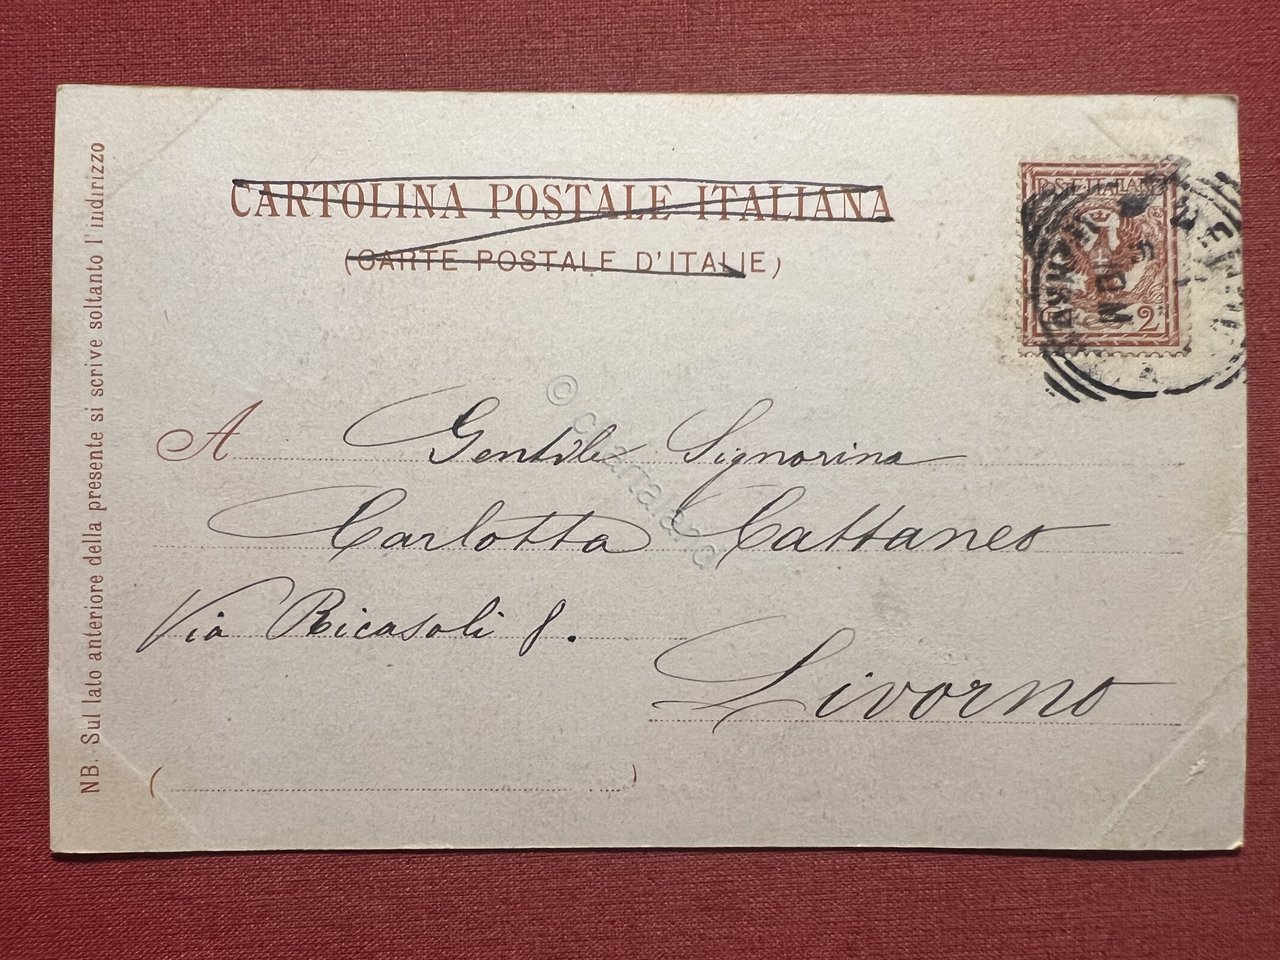 CARTOLINA POSTALE ITALIANA
(CARTE POSTALE D'ITALIE)
POSTE ITALIANE
2
A Gentile Signorina
Carlotta Cattaneo
Via Ricasoli 8.
Livorno
NB. Sul lato anteriore della presente si scrive soltanto l'indirizzo
© cartaland